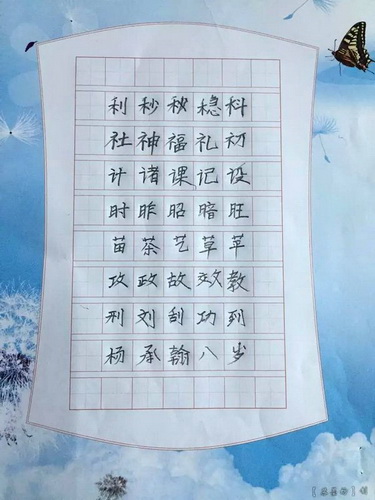 利秒秋稳科
社神福礼初
计诸课记设
时昨昭暗旺
苗茶艺草苹
攻政故效教
刑刘刮功列
杨承翰八岁